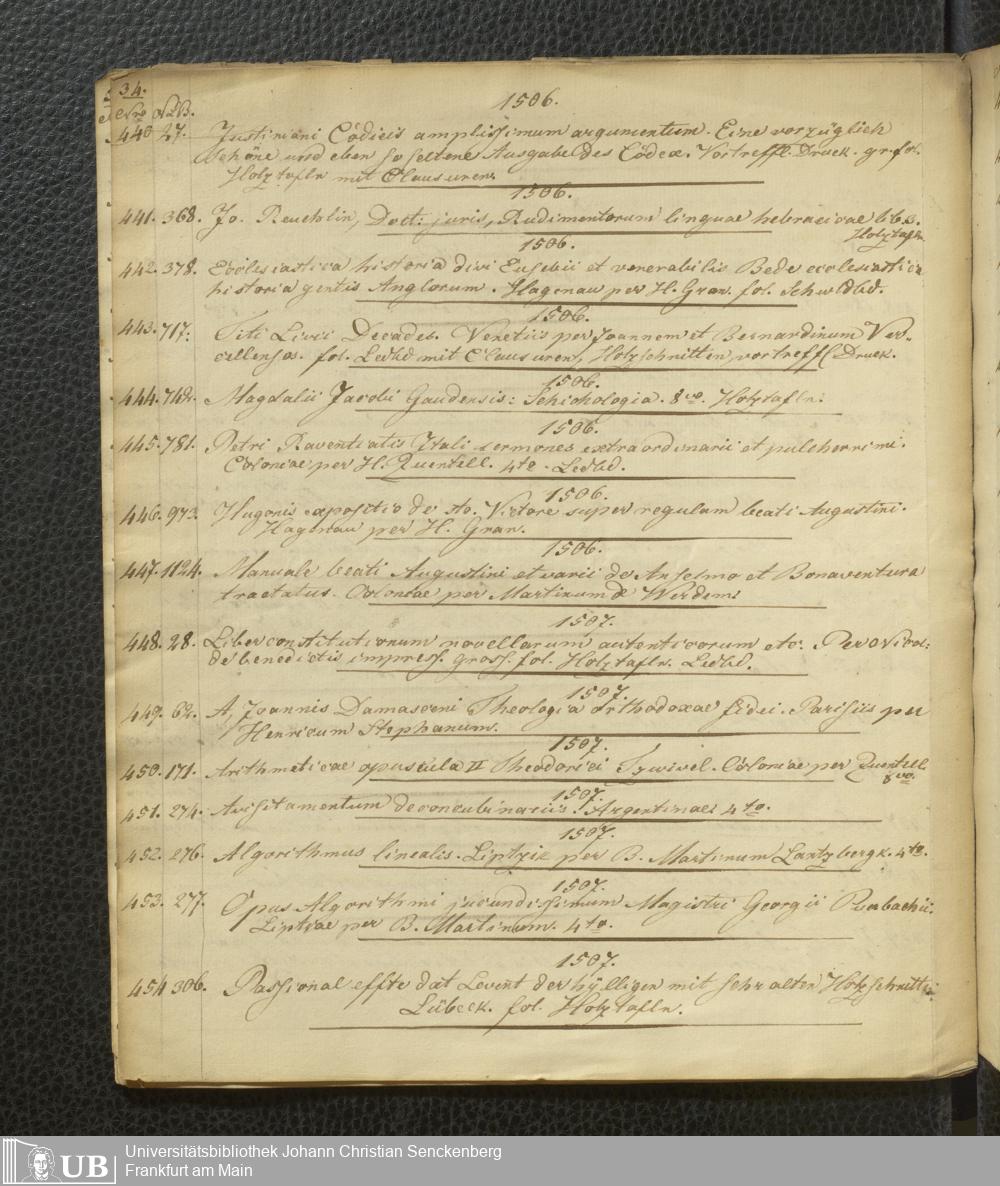 34.
Nro NB.
1506.
440 27. Justiniani Codicis amplissimum argumentum. Eine vorzüglich
schöne und eben so seltene Ausgabe des Codex. Vortreffl. Druck. gr. fol.
Holztafln mit Clausuren.
1506.
441. 368. Jo. Reuchlin, Dott: juris, Rudimentorum linguae hebraicae lib. 3.
Holztafln
1506.
442. 378. Ecclesiastica historia divi Eusebii et venerabilis Bede ecclesiastica
historia gentis Anglorum. Hagenau per H. Gran. fol. Schwldbd.
1506.
443. 717. Titi Livii Decades. Venetiis per Joannem et Bernardinum Ver-
cellenses. fol. Ledbd mit Clausuren, Holzschnitten, vortreffl Druck.
1506.
444. 742. Magdalii Jacobi Gaudensis: Schichologia. 8vo. Holztafln.
1506.
445. 781. Petri Raventiatis Itali sermones extraordinarii et pulcherrimi.
Coloniae per H. Quentell. 4te. Ledbd.
1506.
446. 973. Hugonis expositio de sto. Victore super regulam beati Augustini.
Hagenau per H. Gran.
1506.
447. 1124. Manuale beati Augustini et varii de Anselmo et Bonaventura
tractatus. Coloniae per Martinum de Werdem.
1507.
448. 28. Liber constitutionum novellarum autenticorum etc. Per
de benedictis impress. gross. fol. Holztafln. Ledbd.
1507.
449. 62. Joannis Damasceni Theologia orthodoxae fidei. Parisiis per
Henricum Stephanum.
1507.
450. 171. Arithmeticae opuscula II Theodorici Tzwivel. Coloniae per Quentell.
8vo.
1507.
451. 274. Avisitamentum de concubinariis. Argentinae 4to.
1507.
452. 276. Algorithmus linealis. Liptzik per B. Martinum Lantzbergk. 4to.
1507.
453. 277. Opus Algorithmi jucundissimum Magistri Georgii Purbachii.
Liptzae per B. Martinum. 4to.
1507.
454 306. Passional effte dat Levent der hylligen mit sehr alten Holzschnitt:
Lübeck. fol. Holztafln.
UB
Universitätsbibliothek Johann Christian Senckenberg
Frankfurt am Main